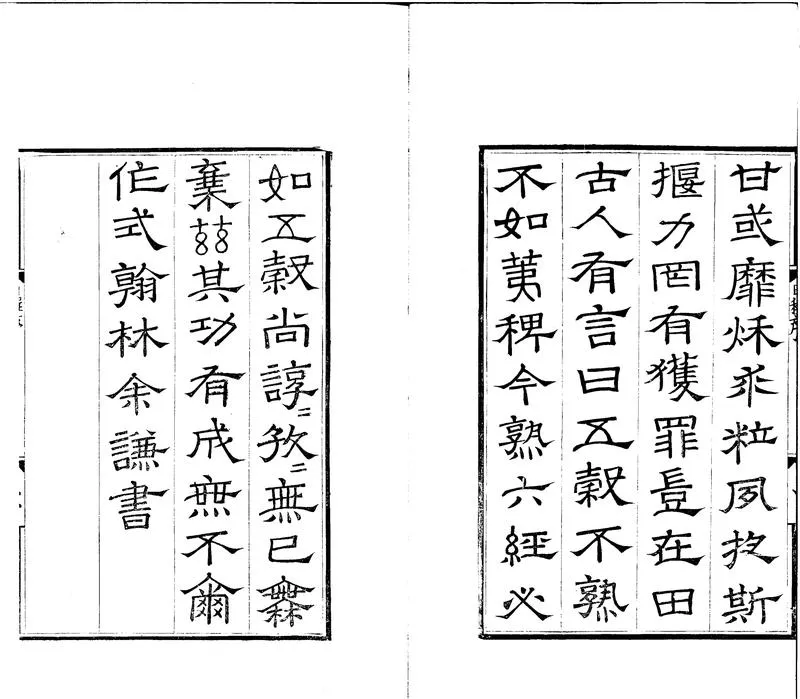 甘或靡秌粒夙斯
揠力罔有獲罪豈在田
古人有言曰五穀不熟
不如荑稗今熟六經必
如五穀尚諄二敄二無已
棄其功有成無不爾
作式翰林余謙書